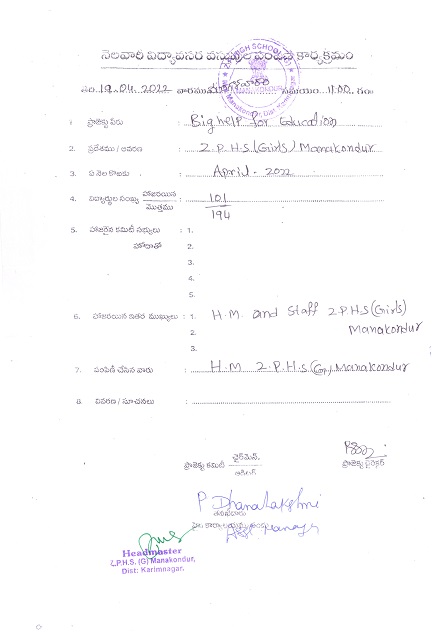 నెలవారి విద్యావసర వస్తువుల పంపిణి కార్యక్రమం
తేది. 19.04.2022 వారము సమయం. 11.00. గం.
1. ప్రాజెక్టు పేరు : Big help for Education
2. ప్రదేశము / ఆవరణ : Z.P.H.S (Girls) Manakondur
3. ఏ నెల కొఱకు : April - 2022
4. విద్యార్థుల సంఖ్య హాజరయిన / మొత్తము : 101 / 194
5. హాజరైన కమిటీ సభ్యులు : 1.
హోదాతో 2.
3.
4.
5.
6. హాజరయిన ఇతర ముఖ్యులు : 1. H.M. and Staff Z.P.H.S (Girls)
2. Manakondur
3.
7. పంపిణి చేసిన వారు : H.M Z.P.H.S (G), Manakondur
8. వివరణ / సూచనలు :
ప్రాజెక్టు కమిటీ చైర్మెన్.
ప్రాజెక్టు డైరెక్టర్
P Dhanalakshmi
Headmaster
Z.P.H.S. (G) Manakondur,
Dist: Karimnagar.